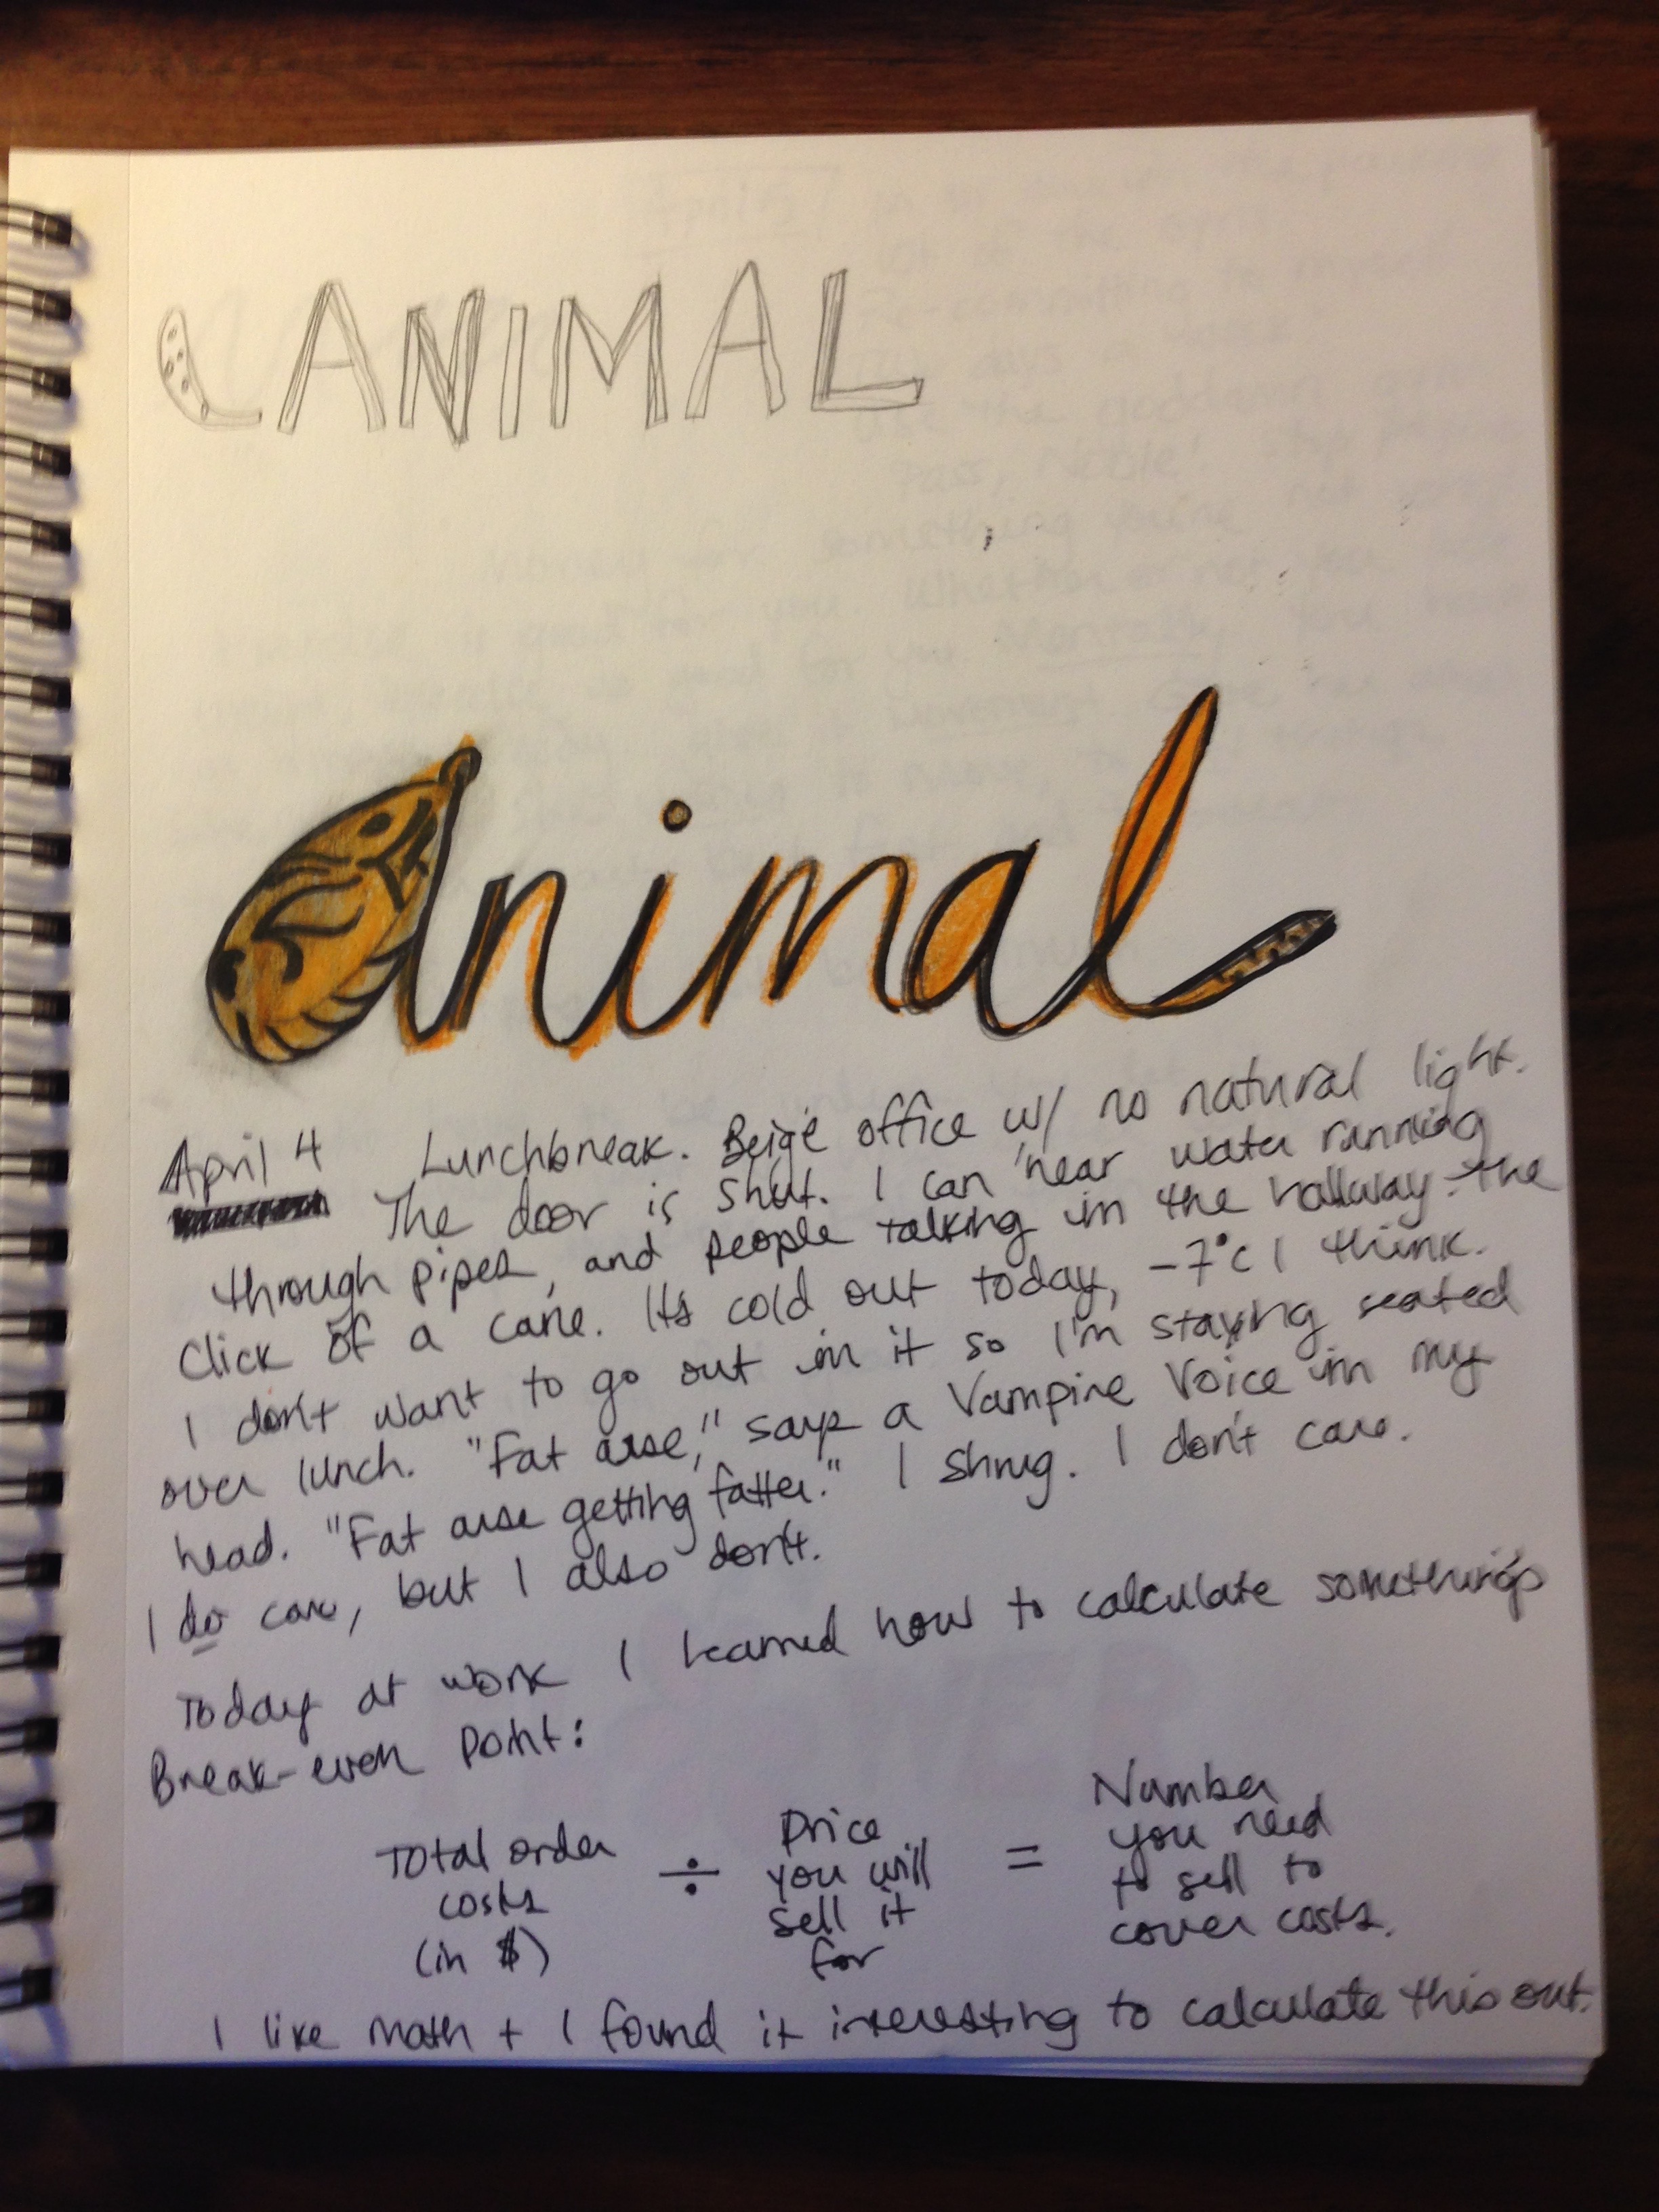 ANIMAL
animal
April 4 Lunchbreak. Beige office w/ no natural light.
The door is shut. I can hear water running
through pipes, and people talking in the hallway. The
click of a cane. Its cold out today, -7°C I think.
I don't want to go out in it so I'm staying seated
over lunch. "Fat arse," says a Vampire Voice in my
head. "Fat arse getting fatter." I shrug. I don't care.
I do care, but I also don't.
Today at work I learned how to calculate something's
Break-even point:
Total order costs (in $) ÷ Price you will sell it for = Number you need to sell to cover costs.
I like math + I found it interesting to calculate this out.